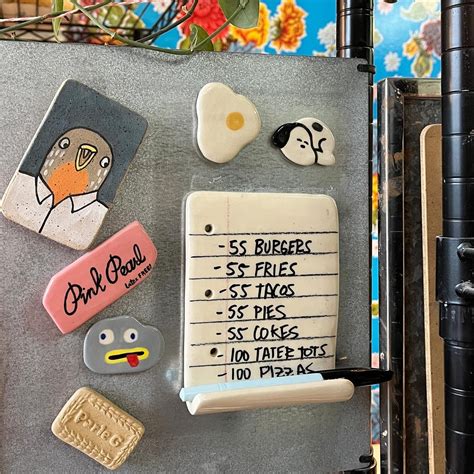 Pink Pearl
with FREE!
- 55 BURGERS
- 55 FRIES
- 55 TACOS
- 55 PIES
- 55 COKES
- 100 TATER TOTS
- 100 PIZZAS
Parle G